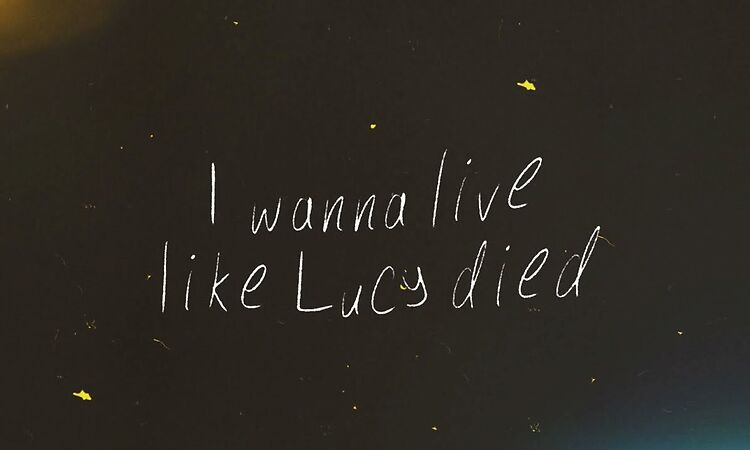 I wanna live
like Lucy died